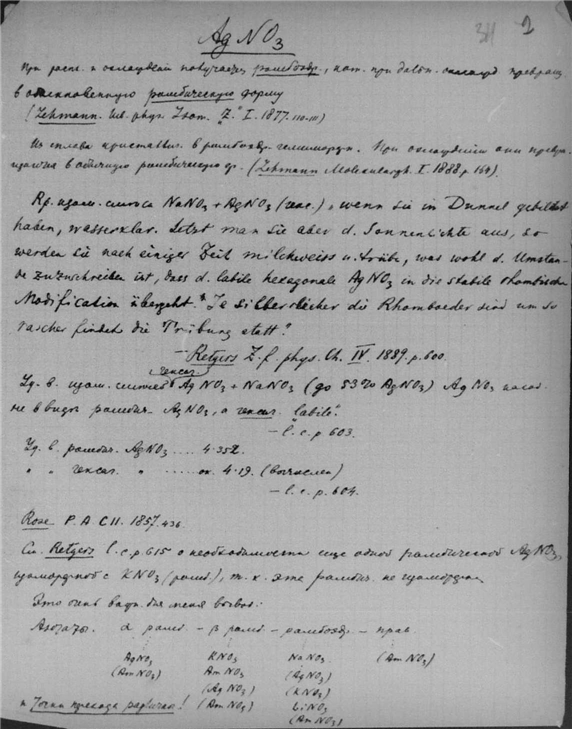 2
AgNO3
При распл. и охлаждении получается ромбоэдр., кот. при дальн. охлажд. превращ.
в обыкновенную ромбическую форму
(Lehmann. Ueb. phys. Isom. "Z." I. 1877. 110-111)
Из сплава кристаллиз. в ромбоэдр. При охлаждении они превр.
в обычную ромбическую ф. (Lehmann Molekularph. I. 1888. p 154).
Кр. изом. смеси NaNO3 + AgNO3 (гекс.) „wenn sie in Dunnel gebildet
haben, wasserklar. Setzt man sie aber d. Sonnenlichte aus, so
werden sie nach einiger Zeit milchweiss u. trübe, was wohl d. Umstan-
de zuzuschreiben ist, dass d. labile hexagonale AgNO3 in die stabile rhombische
Modification übergeht. Je silberreicher die Rhomboeder sind um so
rascher findet die Trübung statt."
– Retgers Z. f. phys. Ch. IV. 1889. p. 600.
Уд. в. изом. смесей гексаг. AgNO3 + NaNO3 (до 53% AgNO3) AgNO3
не в виде ромбич. AgNO3, а гексаг. „labile".
– l. c. p 603.
Уд. в. ромбич. AgNO3 ..... 4.352.
" " гексаг. " ..... ок. 4.19. (вычислен)
– l. c. p. 604.
Rose. P. A. CII. 1857. 436.
См. Retgers l. c. p 615 о необходимости еще одной ромбической AgNO3,
изоморфной с KNO3 (ромб.), т. к. эта ромбич. не изоморфна
Это очень важн. для меня вывод:
Азотаты. α ромб. – β ромб – ромбоэдр. – прав.
AgNO3 KNO3 NaNO3 (AmNO3)
(AmNO3) AmNO3 (AgNO3)
(AgNO3) (KNO3)
и точки перехода различны! (AmNO3) LiNO3
(AmNO3)